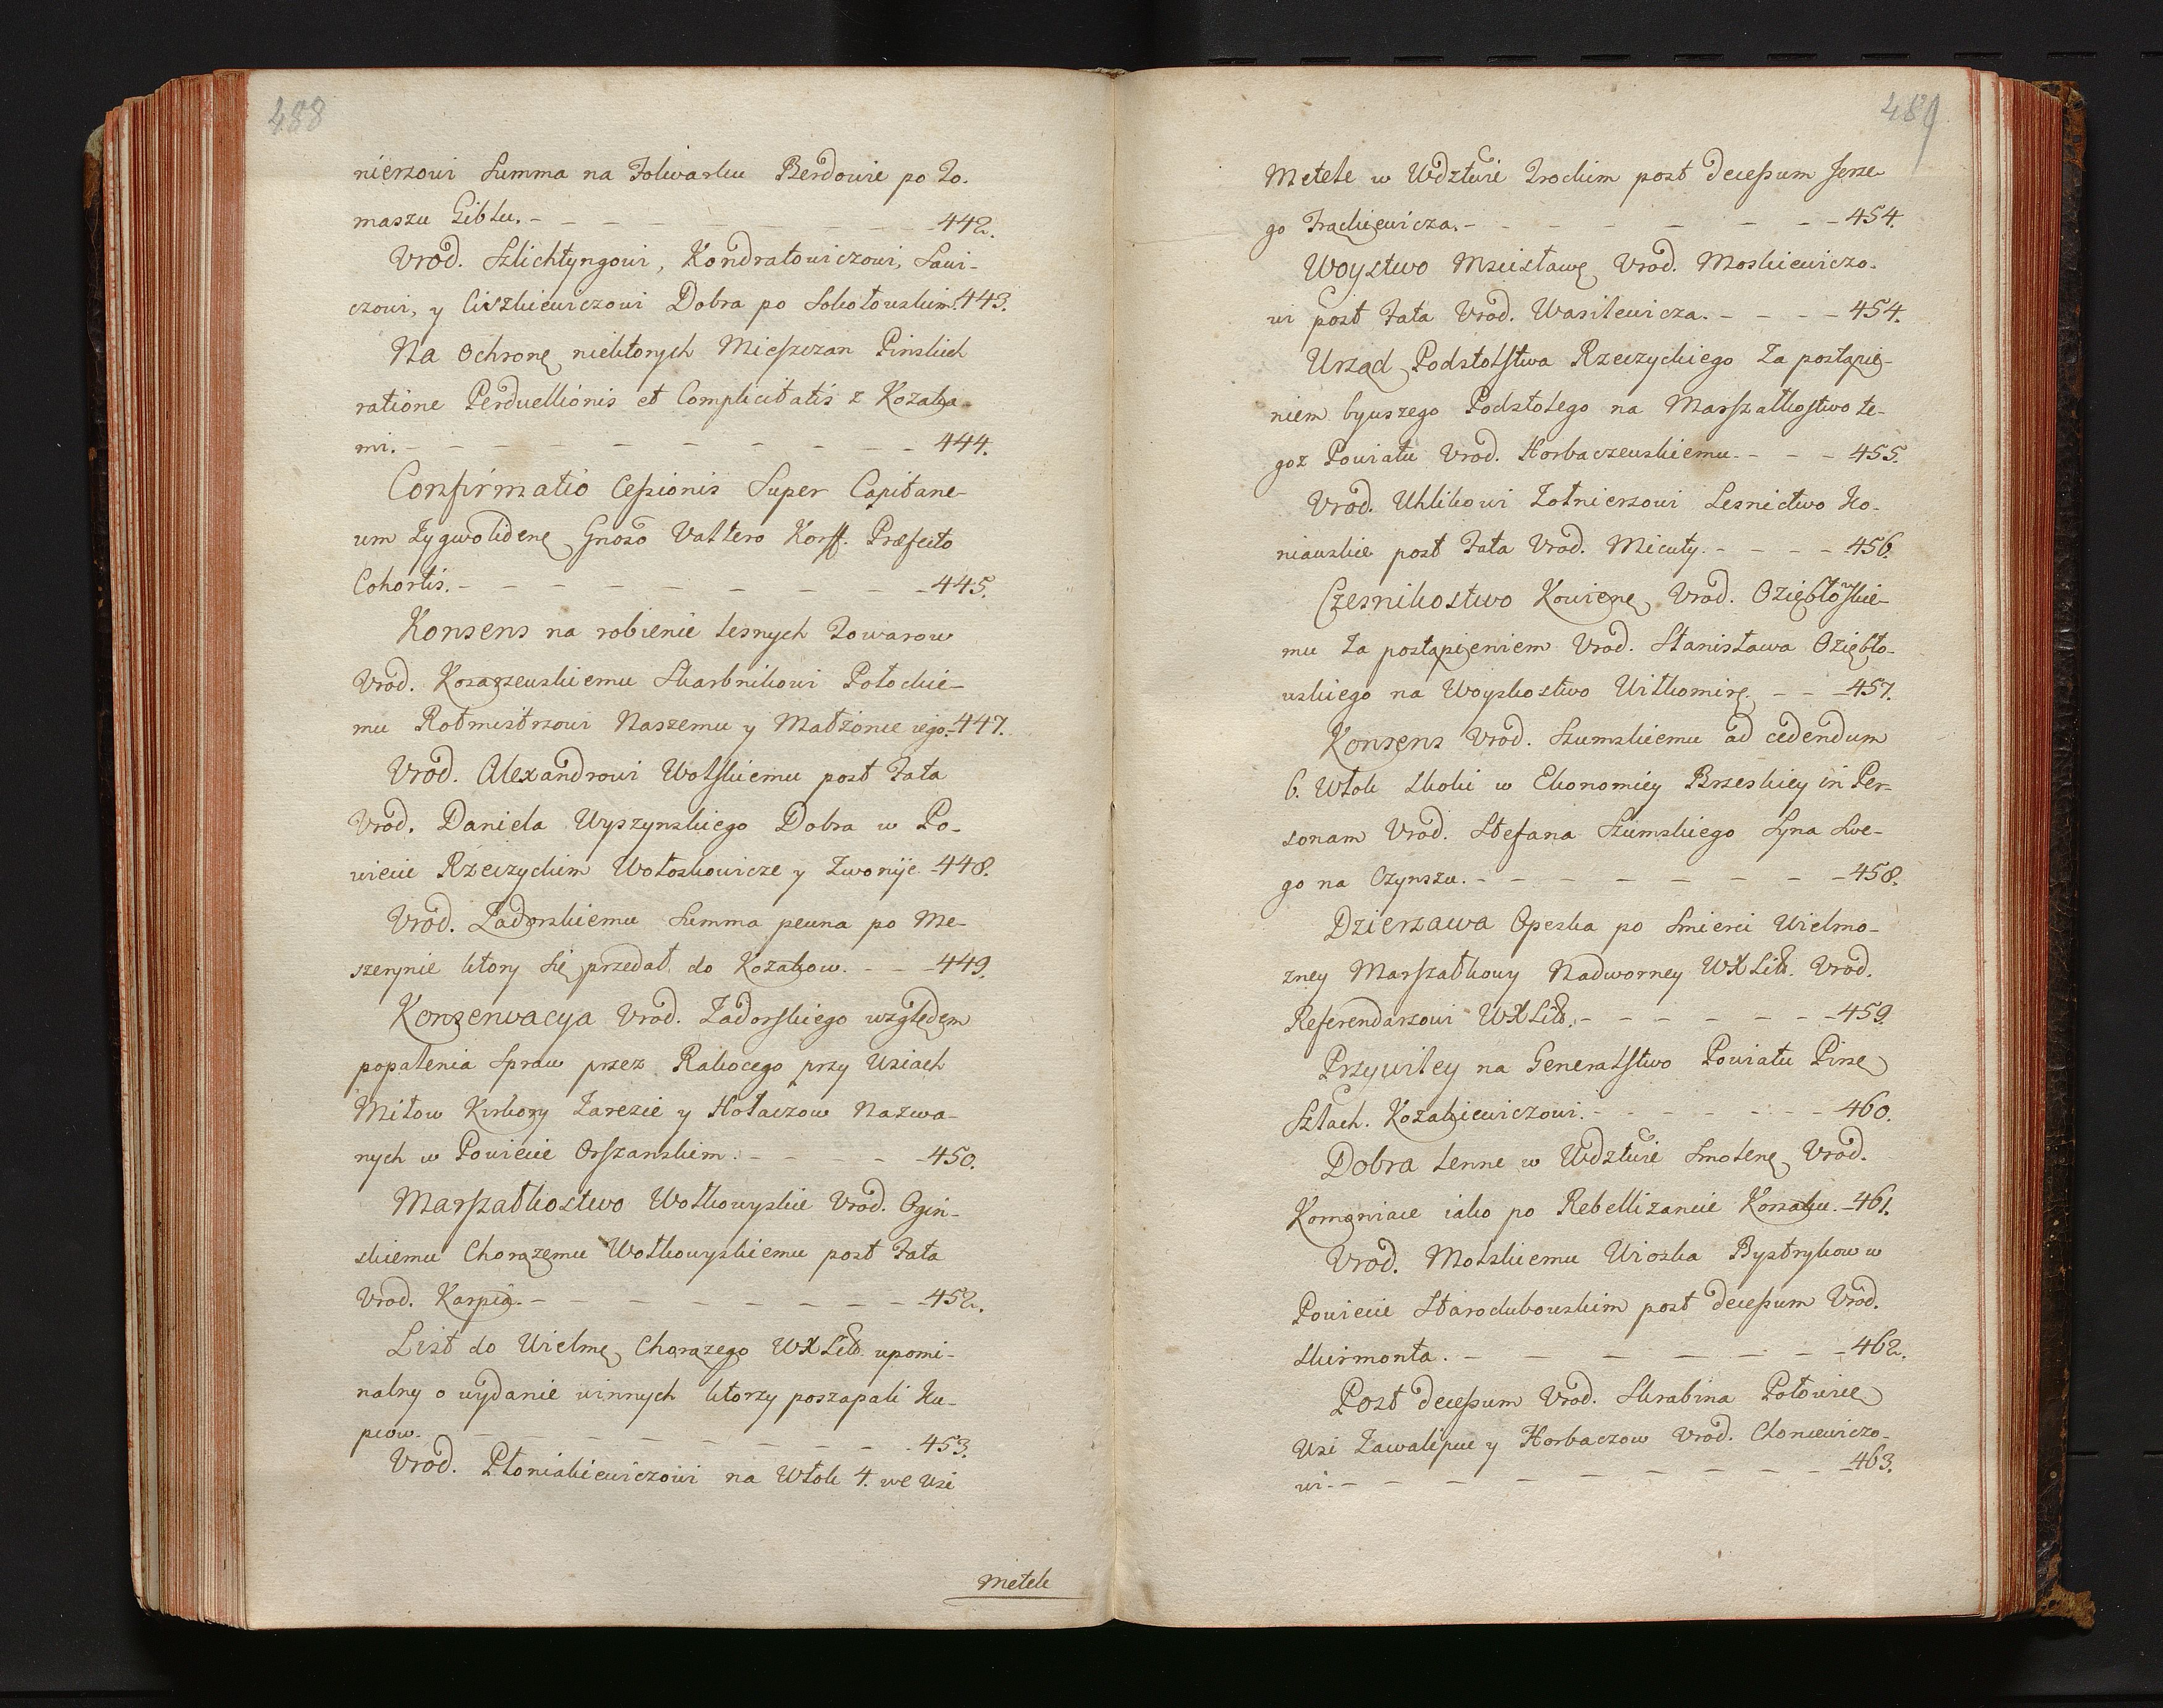 488
nierzowi Summa na Folwarku Berdowie po To-
maszu Giblu. - - - - - - - - 442.
Vrod. Szlichtyngowi, Kondratowiczowi, Sawi-
czowi, y Ciszkiewiczowi Dobra po Sokołowskim. 443.
Na Ochronę niektorych Mieszczan Pinskich
ratione Perduellionis et Complicitatis z Kozaka-
mi. - - - - - - - - - 444.
Confirmatio Cessionis Super Capitane-
um Zygwoldenę Gnoso Valtero Korff. Præfecto
Cohortis. - - - - - - - - 445.
Konsens na robienie lesnych Towarow
Vrod. Kosarzewskiemu Skarbnikowi Połockie-
mu Rotmistrzowi Naszemu y Małżonce iego. 447.
Vrod. Alexandrowi Wolskiemu post Fata
Vrod. Daniela Wyszynskiego Dobra w Po-
wiecie Rzeczyckim Wołoskowicze y Zwonije - 448.
Vrod. Zadorskiemu Summa pewna po Me-
szerynie ktory się przedał do Kozakow. - - 449.
Konserwacya Vrod. Zadorskiego względem
popalenia Spraw przez Rakocego przy Wsiach
Miłow Kirkory Zarezie y Hołaczow Nazwa-
nych w Powiecie Orszanskim. - - - - 450.
Marszałkostwo Wołkowyskie Vrod. Ogin-
skiemu Chorążemu Wołkowyskiemu post Fata
Vrod. Karpia. - - - - - - - 452.
List do Wielmę Chorążego WXLitt. upomi-
nalny o wydanie winnych ktorzy poszarpali Ku-
pcow. - - - - - - - - 453.
Vrod. Płoniakiewiczowi na Włok 4. we Wsi
Metele
489
Metele w Wdztwie Trockim post decessum Jerze-
go Frąckiewicza. - - - - - - - 454.
Woystwo Mscisławę Vrod. Moskiewiczo-
wi post Fata Vrod. Wasilewicza. - - - - 454.
Urząd Podstolstwa Rzeczyckiego Za postąpie-
niem bywszego Podstolego na Marszałkostwo te-
goz Powiatu Vrod. Horbaczewskiemu. - - - 455.
Vrod. Uhlikowi Zołnierzowi Lesnictwo Ko-
niawskie post Fata Vrod. Micuty. - - - - 456.
Czesnikostwo Kowienę Vrod. Oziębłowskie-
mu Za postąpieniem Vrod. Stanisława Oziębło-
wskiego na Woyskostwo Wiłkomirę. - - - 457.
Konsens Vrod. Szumskiemu ad cedendum
6. Włok Skoki w Ekonomiey Brzeskiey in Per-
sonam Vrod. Stefana Szumskiego Syna Swe-
go na Czynszu. - - - - - - - 458.
Dzierzawa Opeska po Smierci Wielmo-
zney Marszałkowy Nadworney WXLitt. Vrod.
Referendarzowi WXLitt. - - - - - - - 459.
Przywiley na Generalstwo Powiatu Pinsę
Szlach. Kozakiewiczowi. - - - - - - 460.
Dobra lenne w Wdztwie Smolenę Vrod.
Komoniace iako po Rebellizancie Korsaku. - 461.
Vrod. Molskiemu Wioska Bystrykow w
Powiecie Starodubowskim post decessum Vrod.
Skirmonta. - - - - - - - 462.
Post decessum Vrod. Skrabina Połowicę
Wsi Zawalipue y Horbaczow Vrod. Cloniewiczo-
wi. - - - - - - - - - 463.